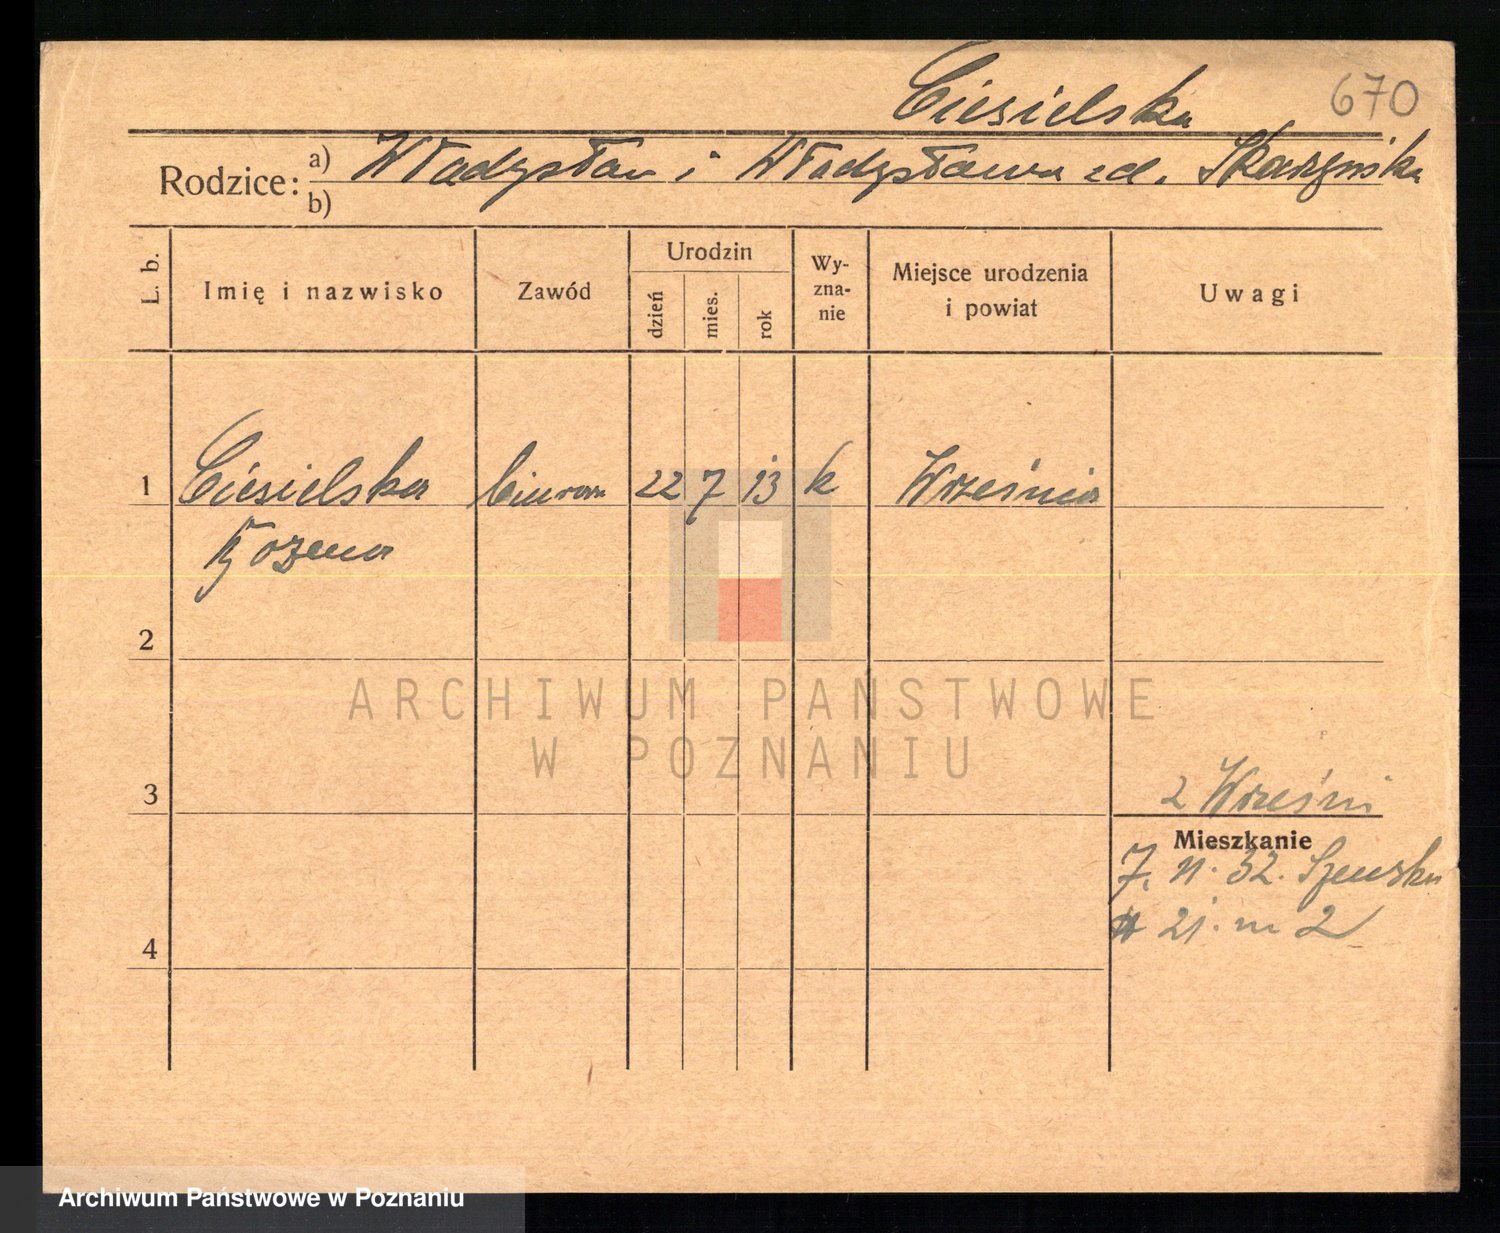 Ciesielska 670
Rodzice: a) Władysław i Władysława zd. Skarzyńska
b)
L. b. Imię i nazwisko Zawód Urodzin dzień mies. rok Wy-zna-nie Miejsce urodzenia i powiat Uwagi
1 Ciesielska 22 7 13 k Września
Bożena
2
ARCHIWUM PAŃSTWOWE
W POZNANIU
2 Wrześni
3
Mieszkanie
7. 11. 32.
4 21. m 2
Archiwum Państwowe w Poznaniu